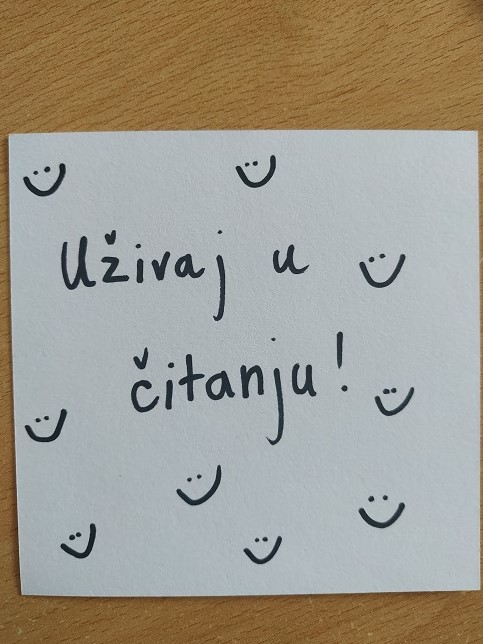 Uživaj u
čitanju!